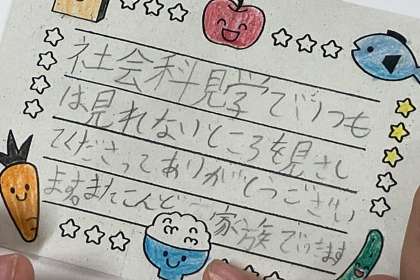 社会科見学でいつも
は見れないところを見さし
てくださってありがとうござい
ます。またこんど 家族でいきます